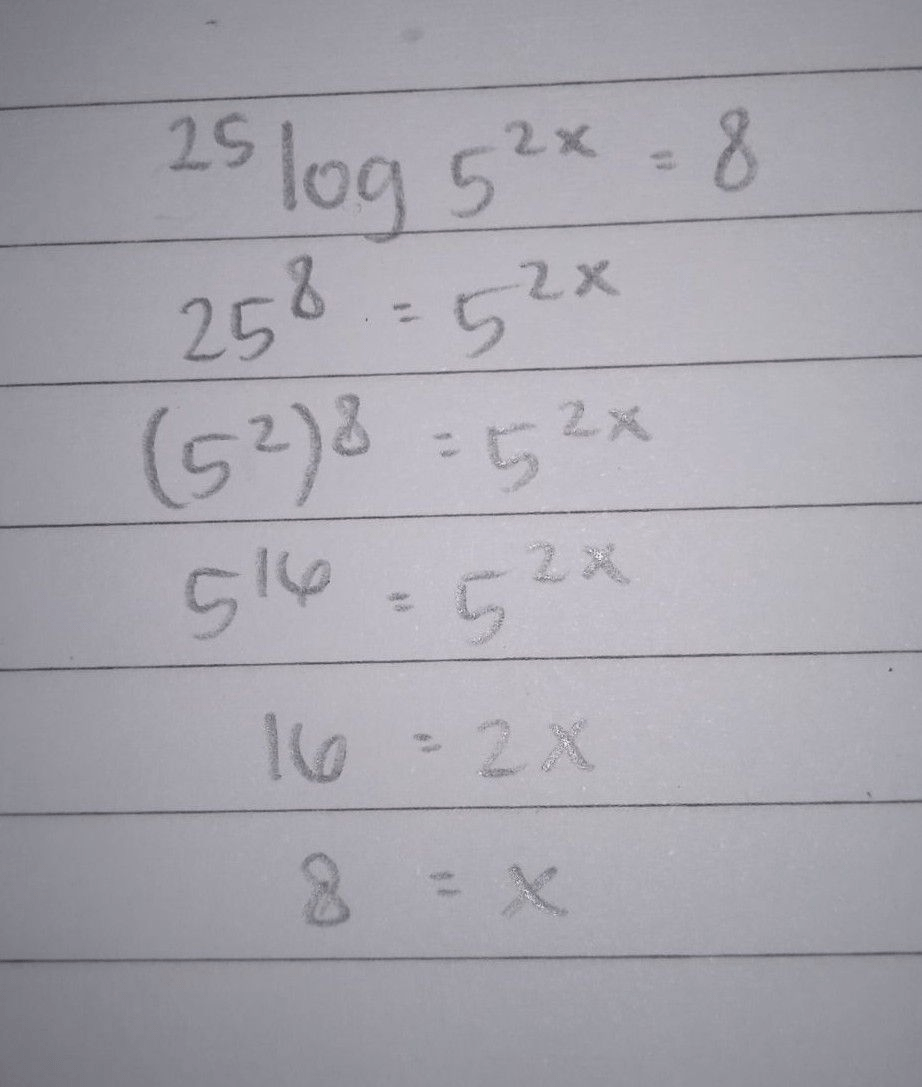 ²⁵log 5²ˣ = 8
25⁸ = 5²ˣ
(5²)⁸ = 5²ˣ
5¹⁶ = 5²ˣ
16 = 2x
8 = x